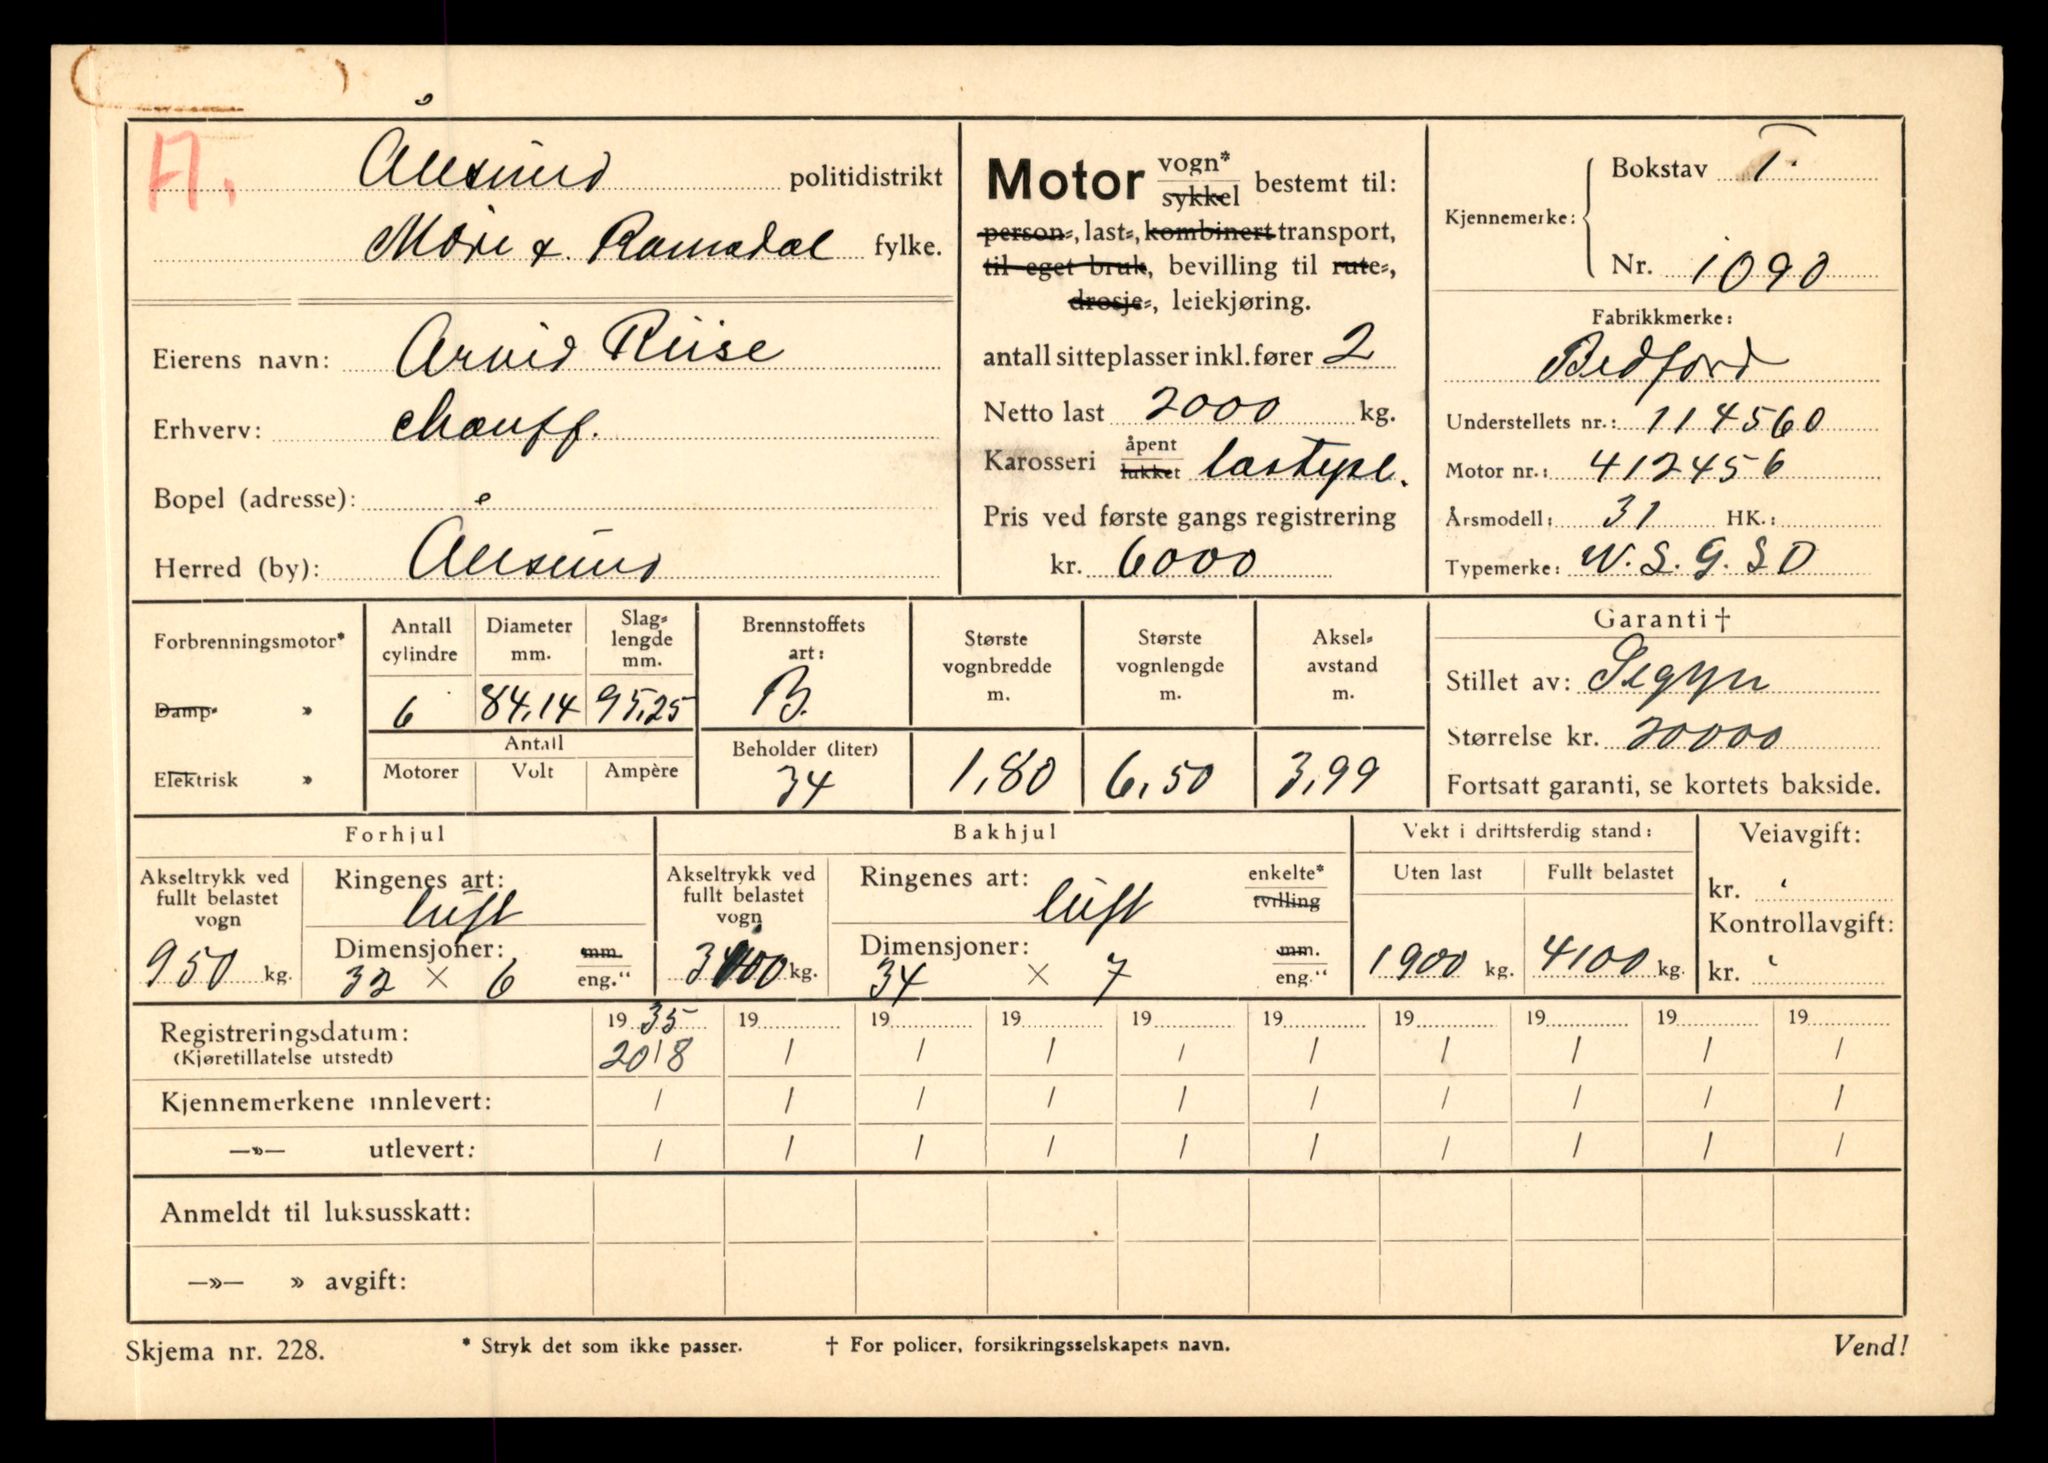 A.
Ålesund politidistrikt
Møre & Romsdal fylke.
Eierens navn: Arvid Riise
Erhverv: chauff.
Bopel (adresse):
Herred (by): Ålesund
Motor vogn* sykkel bestemt til:
person-, last-, kombinert transport,
til eget bruk, bevilling til rute-,
drosje-, leiekjøring.
antall sitteplasser inkl. fører 2
Netto last 2000 kg.
Karosseri åpent lukket lastepl.
Pris ved første gangs registrering
kr. 6000
Kjennemerke: Bokstav T.
Nr. 1090
Fabrikkmerke:
Bedford
Understellets nr.: 114560
Motor nr.: 412456
Årsmodell: 31 HK.:
Typemerke: W.S.G.SD
Forbrenningsmotor*
Damp- »
Elektrisk »
Antall cylindre
6
Diameter mm.
84,14
Slag-lengde mm.
95,25
Antall
Motorer Volt Ampère
Brennstoffets art:
B.
Beholder (liter)
34
Største vognbredde m.
1,80
Største vognlengde m.
6,50
Aksel-avstand m.
3,99
Garanti †
Stillet av:
Størrelse kr. 20000
Fortsatt garanti, se kortets bakside.
Forhjul
Akseltrykk ved fullt belastet vogn
950 kg.
Ringenes art:
luft
Dimensjoner: mm. eng."
32 × 6
Bakhjul
Akseltrykk ved fullt belastet vogn
kg.
Ringenes art: enkelte* tvilling
luft
Dimensjoner: mm. eng."
34 × 7
Vekt i driftsferdig stand:
Uten last Fullt belastet
1900 kg. 4100 kg.
Veiavgift:
kr.
Kontrollavgift:
kr.
Registreringsdatum: 1935 19 19 19 19 19 19 19 19 19
(Kjøretillatelse utstedt) 20/8 / / / / / / / / /
Kjennemerkene innlevert: / / / / / / / / / /
—»— utlevert: / / / / / / / / / /
Anmeldt til luksusskatt:
—»— » avgift:
Skjema nr. 228. * Stryk det som ikke passer. † For policer, forsikringsselskapets navn. Vend!